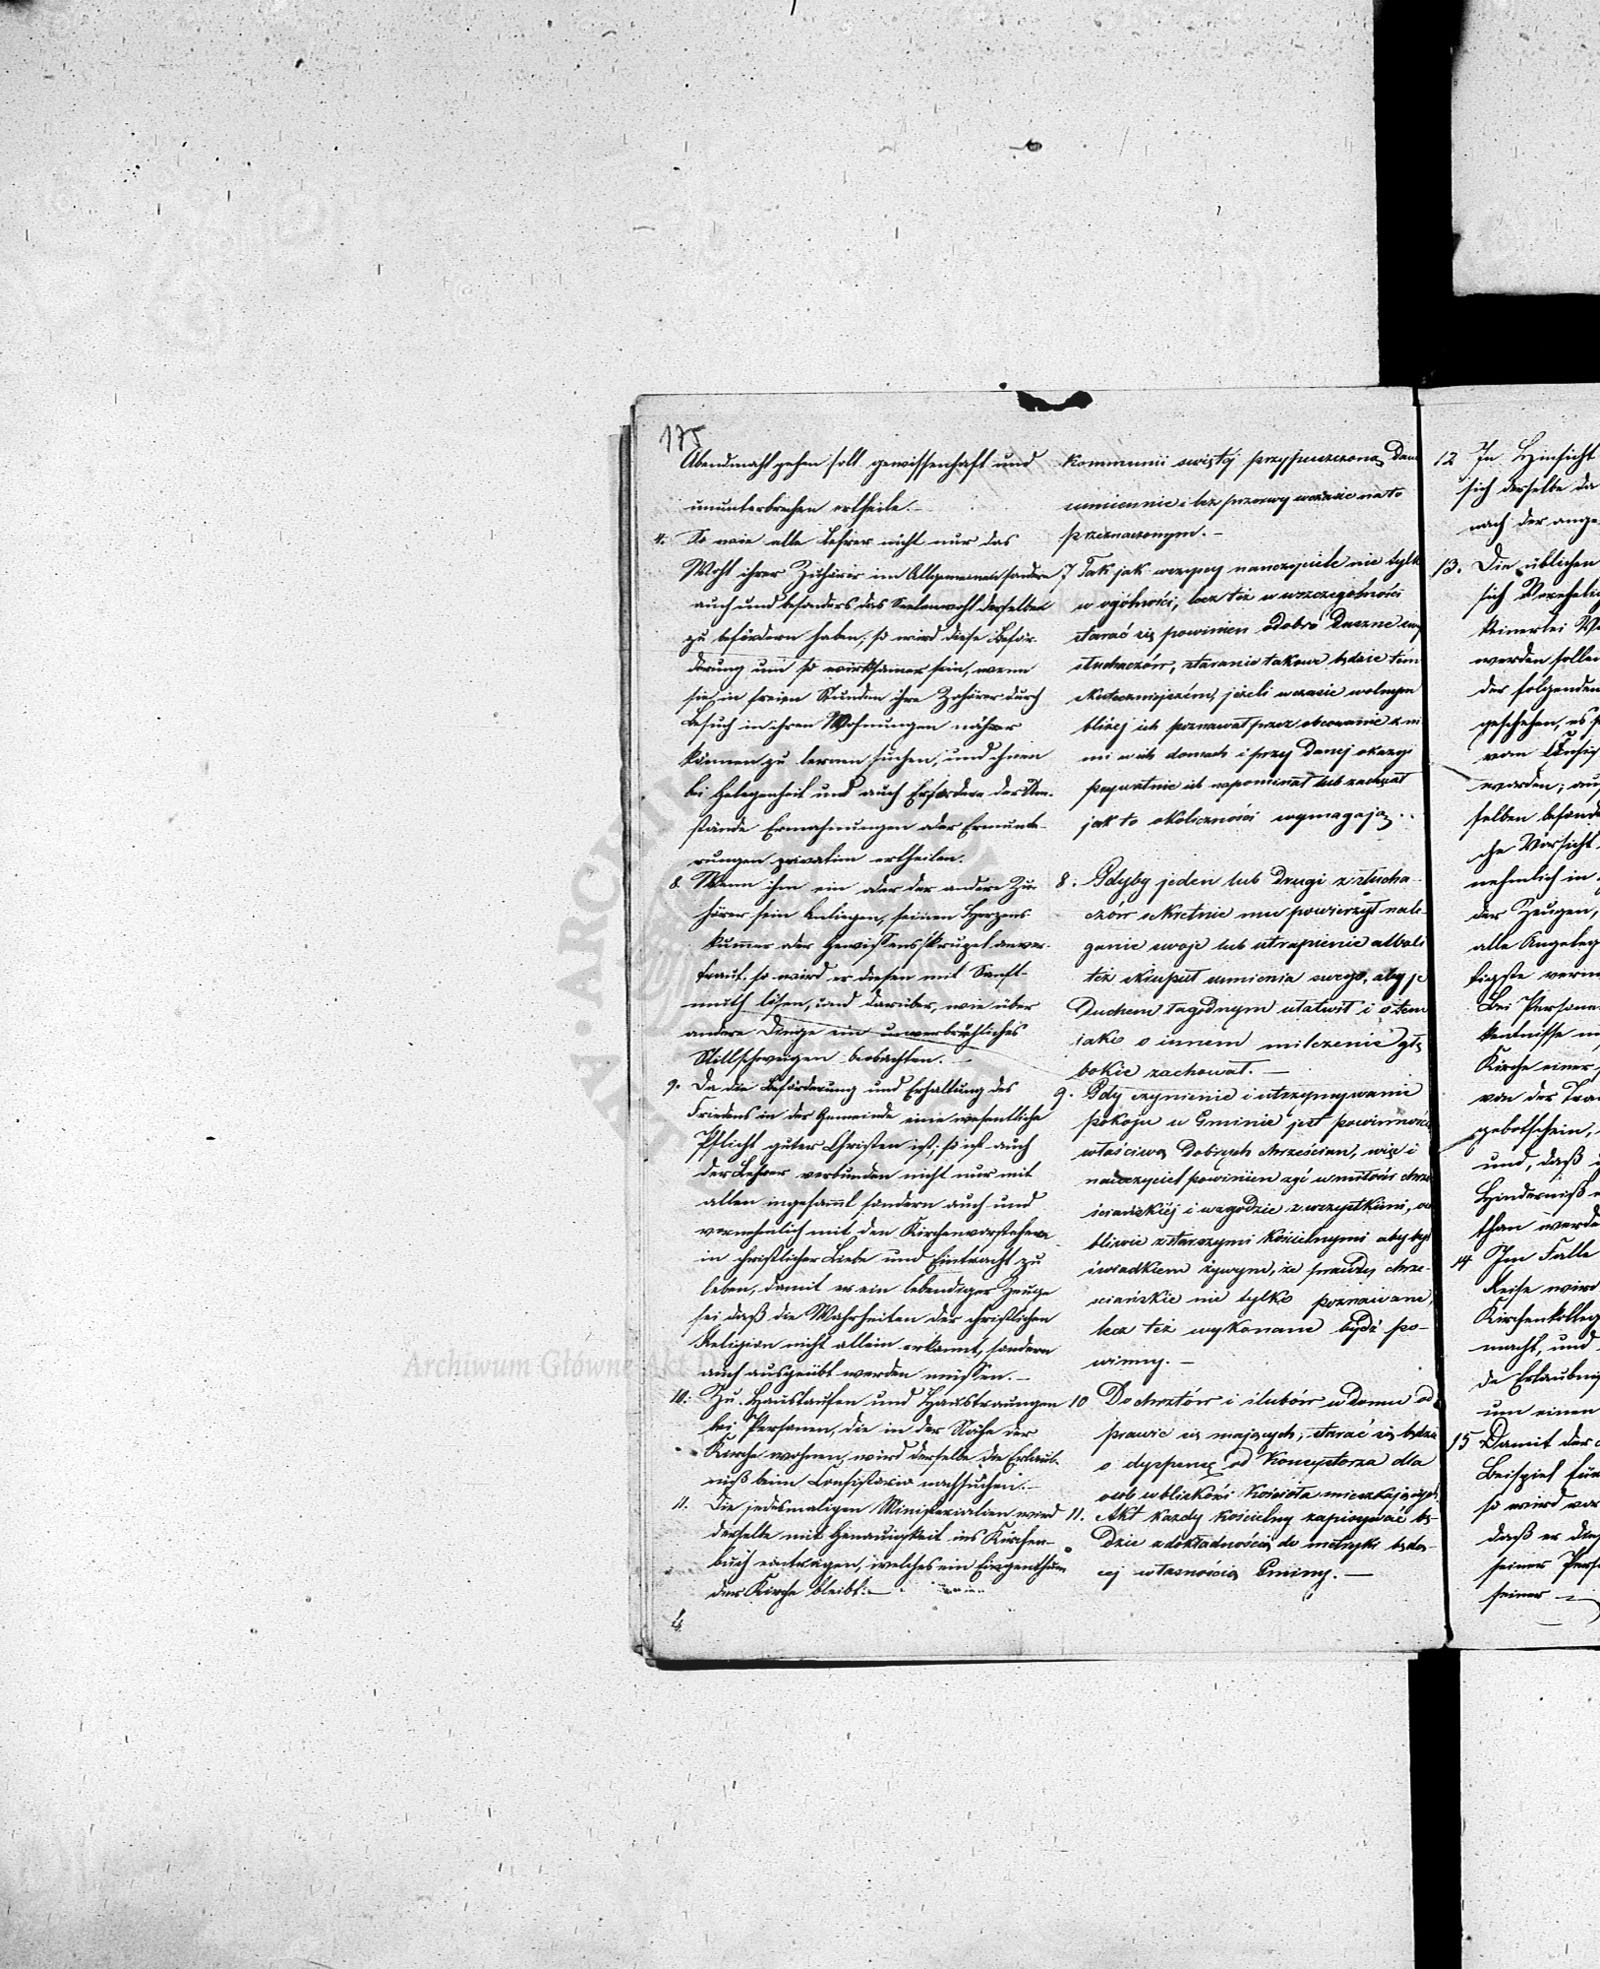 175
Abendmahl gehen soll gewissenhaft und
ununterbrochen ertheile.–
4. So wie alle Lehrer nicht nur das
Wohl ihrer Zuhörer im Allgemeinen sondern
auch und besonders das Seelenwohl derselben
zu befördern haben; so wird diese Beför-
derung um so wirksamer sein, wenn
sie in freien Stunden ihre Zuhörer durch
Besuch in ihren Wohnungen näher
kennen zu lernen suchen, und ihnen
bei Gelegenheit und auch Erfordern der Um-
stände Ermahnungen oder Ermunte-
rungen privatim ertheilen.
8. Wenn ihm ein oder der andere Zu-
hörer sein Anliegen, seinen Herzens
kummer oder Gewissensskrupel anver-
traut, so wird er diesen mit Sanft-
muth lösen, und darüber, wie über
andere Dinge ein unverbrüchliches
Stillschweigen beobachten.–
9. Da die Beförderung und Erhaltung des
Friedens in der Gemeinde eine wesentliche
Pflicht guter Christen ist; so ist auch
der Lehrer verbunden nicht nur mit
allen ingesammt sondern auch und
vornehmlich mit den Kirchenvorstehern
in christlicher Liebe und Eintracht zu
leben, damit er ein lebendiger Zeuge
sei daß die Wahrheiten der christlichen
Religion nicht allein erkannt, sondern
auch ausgeübt werden müssen.–
10. Zu Haustaufen und Haustrauungen
bei Personen, die in der Nähe der
Kirche wohnen, wird derselbe die Erlaub-
niß beim Consistorio nachsuchen.–
11. Die jedesmaligen Ministerialien wird
derselbe mit Genauigkeit ins Kirchen-
buch eintragen, welches ein Eigenthum
der Kirche bleibt.–
4
Kommunii swiętej przypuszczoną dawał
sumiennie i bez przerwy w czasie na to
przeznaczonym.–
7 Tak jak wszyscy nauczyciele nie tylko
w ogólności, lecz też w wszczególności
starać się powinien o dobro duszne swych
słuchaczów, staranie takowe będzie tém
skuteczniejszém, jeżeli w czasie wolnym
bliżej ich poznawał przez obcowanie z ni
mi w ich domach i przy danej okazyi
prywatnie ich napominał lub zachęcał
jak to okoliczności wymagają.
8. Gdyby jeden lub drugi z słucha-
czów sekretnie mu powierzył nale-
ganie swoje lub utrapienie alboli
też skrupuł sumienia swego, aby je
duchem łagodnym ułatwił i o tem
jako o innem milczenie głę
bokie zachował.–
9. Gdy czynienie i utrzymywanie
pokoju w Gminie jest powinnością
właściwą dobrych chrześcian, więc i
nauczyciel powinien żyć w miłości chrze
ściańskiéj i w zgodzie z wszystkiemi, oso
bliwie z starszymi kościelnymi aby był
świadkiem żywym, że prawdy chrze-
sciańskie nie tylko poznawane,
lecz też wykonane bydź po-
winny.–
10 Do chrztów i ślubów w domu od
prawić się mających, starać się będzie
o dyspensę od Konsystorza dla
osób w bliskości Kościoła mieszkających
11. Akt każdy kościelny zapisywać bę-
dzie z dokładnością do metryki będą-
cej własnością Gminy.–
12 In Hinsicht
sich derselbe da
nach der ange
13. Die üblichen
sich Verehelig
keinerlei
werden sollen
der folgenden
geschehen, es
vom
werden; auf
selben besonde
che Vorsicht
nehmlich in
der Zeugen,
alle Angeleg
tigste
Bei Persone
kenntnisse
Kirche einer
von der Trau
und, daß
Hinderniß
than werde
14 Im Falle
Reise wird
Kirchenkolleg
macht, und
de Erlaubniß
um einen
15 Damit der
Beispiel für
so wird
daß er
seiner Pers
seiner
Archiwum Główne Akt D